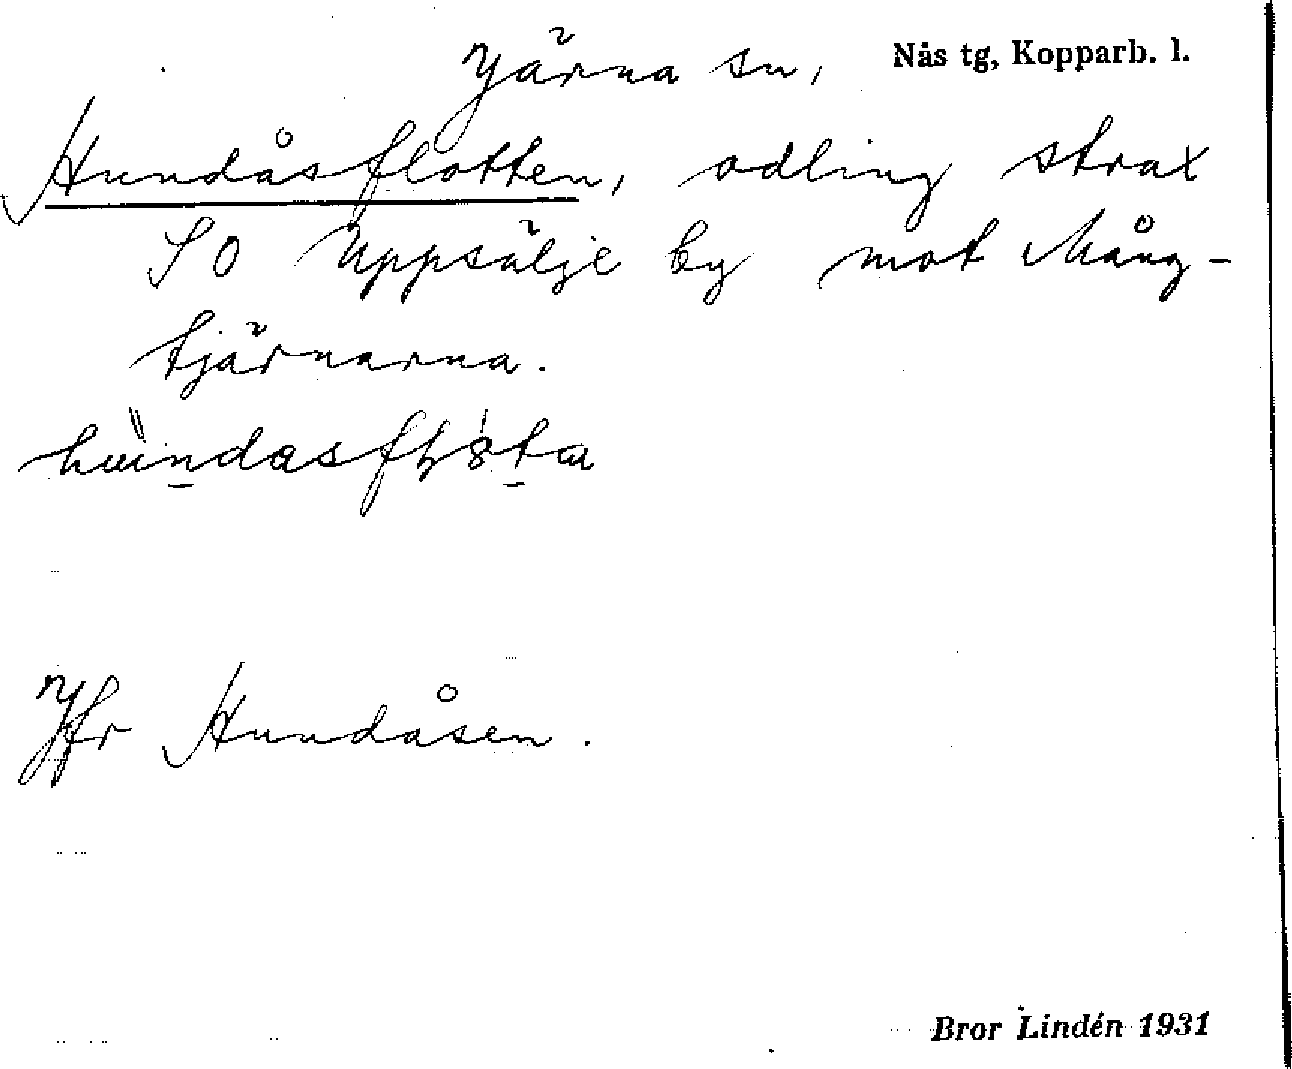 Järna sn, Nås tg, Kopparb. l.
Hundåsflotten, odling strax
SO Uppsälje by mot Mång-
tjärnarna.
Jfr Hundåsen.
Bror Lindén 1931